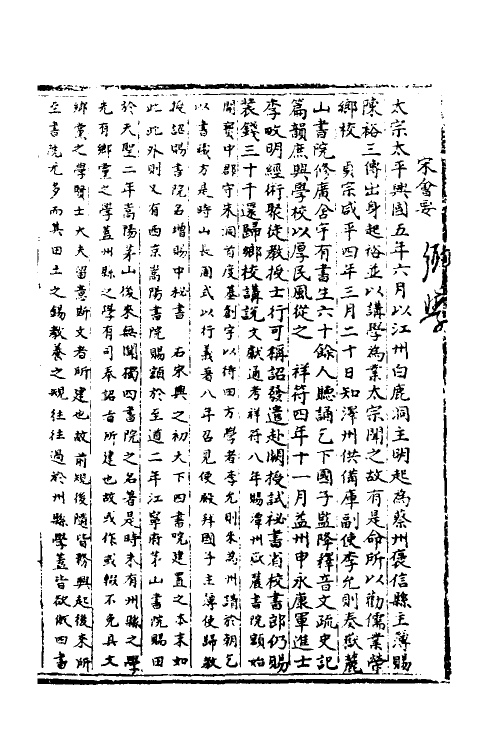 宋會要
太宗太平興國五年六月以江州白鹿洞主明起為蔡州褒信縣主簿賜
陳裕三傳出身起裕並以講學為業太宗聞之故有是命所以勸儒業榮
鄉校　真宗咸平四年三月二十日知潭州供備庫副使李允則奏嶽麓
山書院修廣舍宇有書生六十餘人聽誦乞下國子監降釋音文疏史記
篇韻庶興學校以厚民風從之　祥符四年十一月益州申永康軍進士
李畋明經術聚徒教授士行可稱詔發遣赴闕授試祕書省校書郎仍賜
裝錢三十千還歸鄉校講說文獻通考祥符八年賜潭州嶽麓書院額始
開寶中郡守朱洞首度基創宇以待四方學者李允則來為州請於朝乞
以書藏方是時山長周式以行義著八年召見便殿拜國子主簿使歸教
授詔賜書院名增賜中祕書　右宋興之初天下四書院建置之本末如
此此外則又有西京嵩陽書院賜額於至道二年江寧府茅山書院賜田
於天聖二年嵩陽茅山後來無聞獨四書院之名著是時未有州縣之學
先有鄉黨之學蓋州縣之學有司奉詔旨所建也故或作或輟不免具文
鄉黨之學賢士大夫留意斯文者所建也故前規後隨皆務興起後來所
至書院尤多而其田土之錫教養之規往往過於州縣學蓋皆欲倣四書